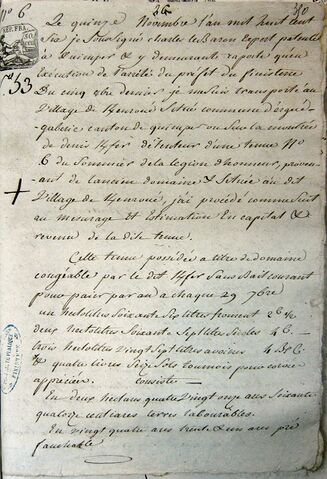 N° 6
50
REP. FRA
50
n° 53
Le quinze Novembre l'an mil huit cent
Six je Soussigné charles le Baron Expert patenté
à Quimper & y demeurant rapporte qu'en
Execution de l'arrêté du préfet du finistere
Du cinq dernier je me suis transporté au
Village de Kerroué Situé commune d'ergué-
gaberic canton de quimper ou Sur la montrée
de denis detenteur d'une tenue N°
6 du Sommier de la legion d'honneur, proven-
ant de l'ancien domaine & Située au dit
Village de Kerroué, j'ai procédé comme suit
au mesurage et Estimation En capital &
revenu de la dite tenue.
Cette tenue possedée a titre de domaine
congéable par le dit Sans Bail courant
pour paier par an a chaque 29 7bre
un hectolitre Soixante Sept litres froment
deux hectolitres Soixante Sept litres Seigle 4 C.
trois hectolitres vingt Sept litres avoine
& quatre livres Seize Sols tournois pour corvée
apprecier. consiste
En deux hectares quatre vingt onze ares Soixante
quatorze centiares terres labourables.
En vingt quatre ares trente & un ares pré
fauchable